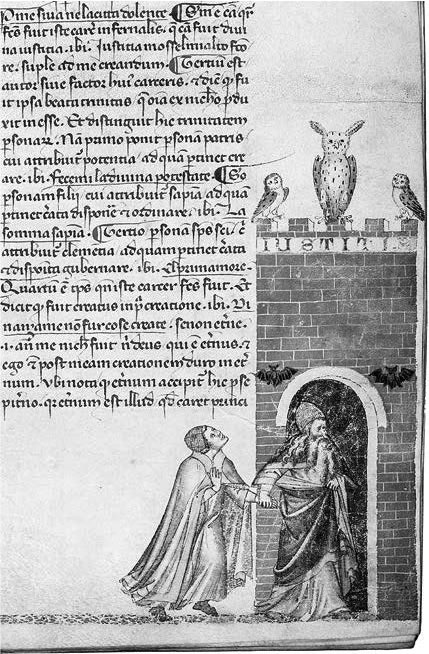 P me si va nela citta dolente. ¶ Scd̃m ē cā qr̃
fc̃o fuit iste carcer infernalis. q̃ cā fuit divi
na iustitia. ibi. Iustitia mosse lmi alto fc̃to
re. suple ad me creandum. ¶ Tertiũ est
autor sive factor hui carceris. & dic̃ q̃ fu
it ipsa beata trinitas q̃ oĩa ex nicħo p̃du
xit in esse. Et distinguit hic trinitatem
p̃sonar. Nã primo ponit p̃sonã patris
cui attribuit̃ potentia ad quã p̃tinet cre
are. ibi. Fecemi la divina potestate. ¶ So
p̃sonam filii cui attribuit̃ sapĩa ad quã
p̃tinet c̃ata dispone & ordinare. ibi. La
somma sapĩa. ¶ Tertio p̃sonã sp̃s sc̃i. c̃
attribuit̃ clementia ad quam p̃tinet c̃ata
& disposita gubernare. ibi. El primo amore.
Quartũ ē tp̃s qñ iste carcer fc̃s fuit. Et
dicit q̃ fuit creatus in p̃ creatione. ibi. Di
nanc̃ a me non fur cose create. se non etñe.
.i. añ me nicħ fuit ñ deus qui ē etñus. &
ego & post meam creationem duro in et̃
num. Ubi nota q̃ et̃num accipit̃ hic p̃ se
pit̃no. qr̃ et̃num est illud qd̃ caret princi
IUSTITIA